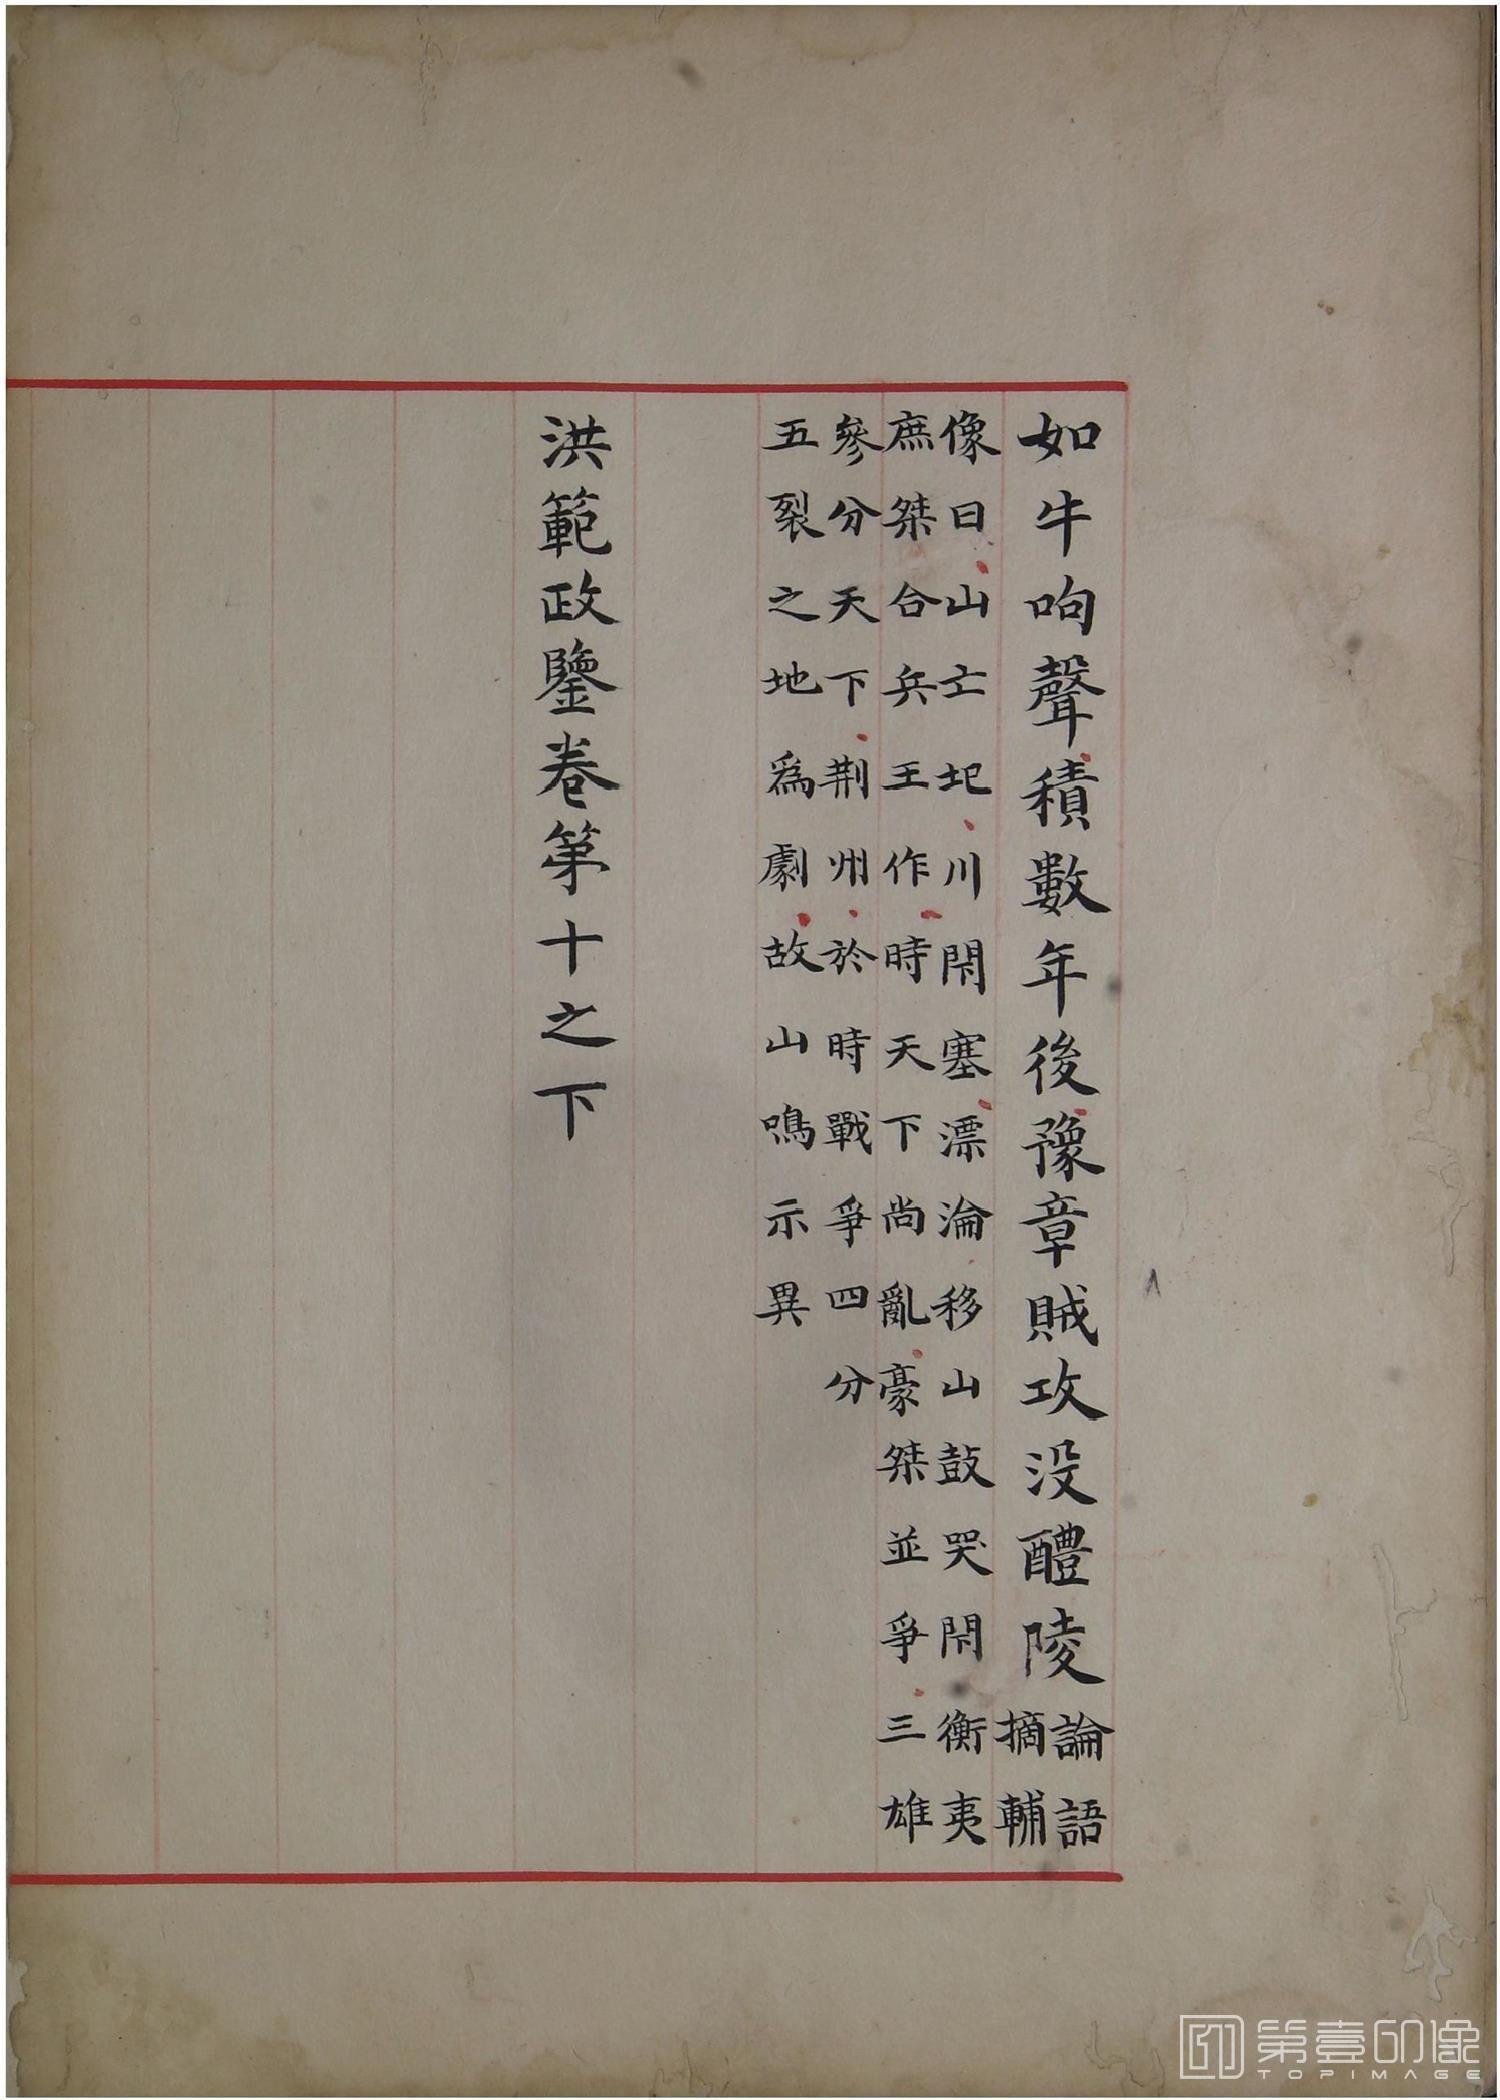 如牛呴聲積數年後豫章賊攻没醴陵
論語
摘輔
像曰山亡圯川閇塞漂淪移山鼓哭閇衡夷
庶桀合兵王作時天下尚亂豪桀並爭三雄
參分天下荆州於時戰爭四分
五裂之地爲劇故山鳴示異
洪範政鑒卷第十之下
第壹印像
TOPIMAGE